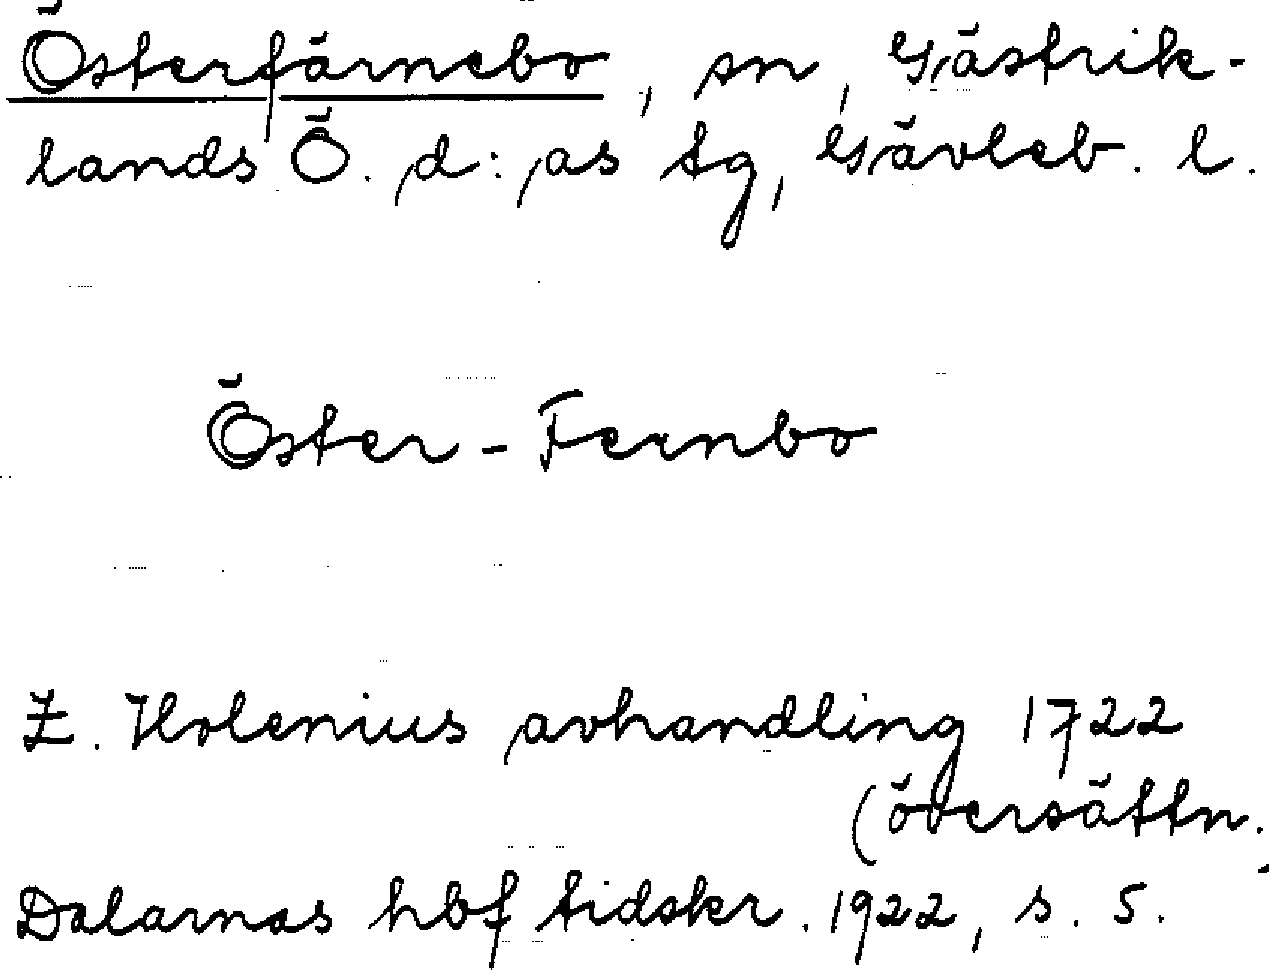 Österfärnebo, sn, Gästrik-
lands Ö. d:as tg, Gävleb. l.
Öster-Fernbo
Z. Holenius avhandling 1722
(översättn.
Dalarnas hbf tidskr. 1922, s. 5.